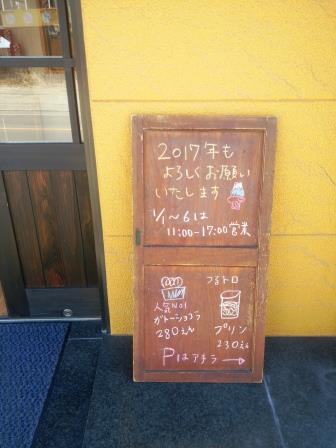 2017年も
よろしくお願い
いたします
1/1～6は
11:00-17:00営業
人気No1
ガトーショコラ
280えん
つるトロ
プリン
230えん
Pはアチラ→